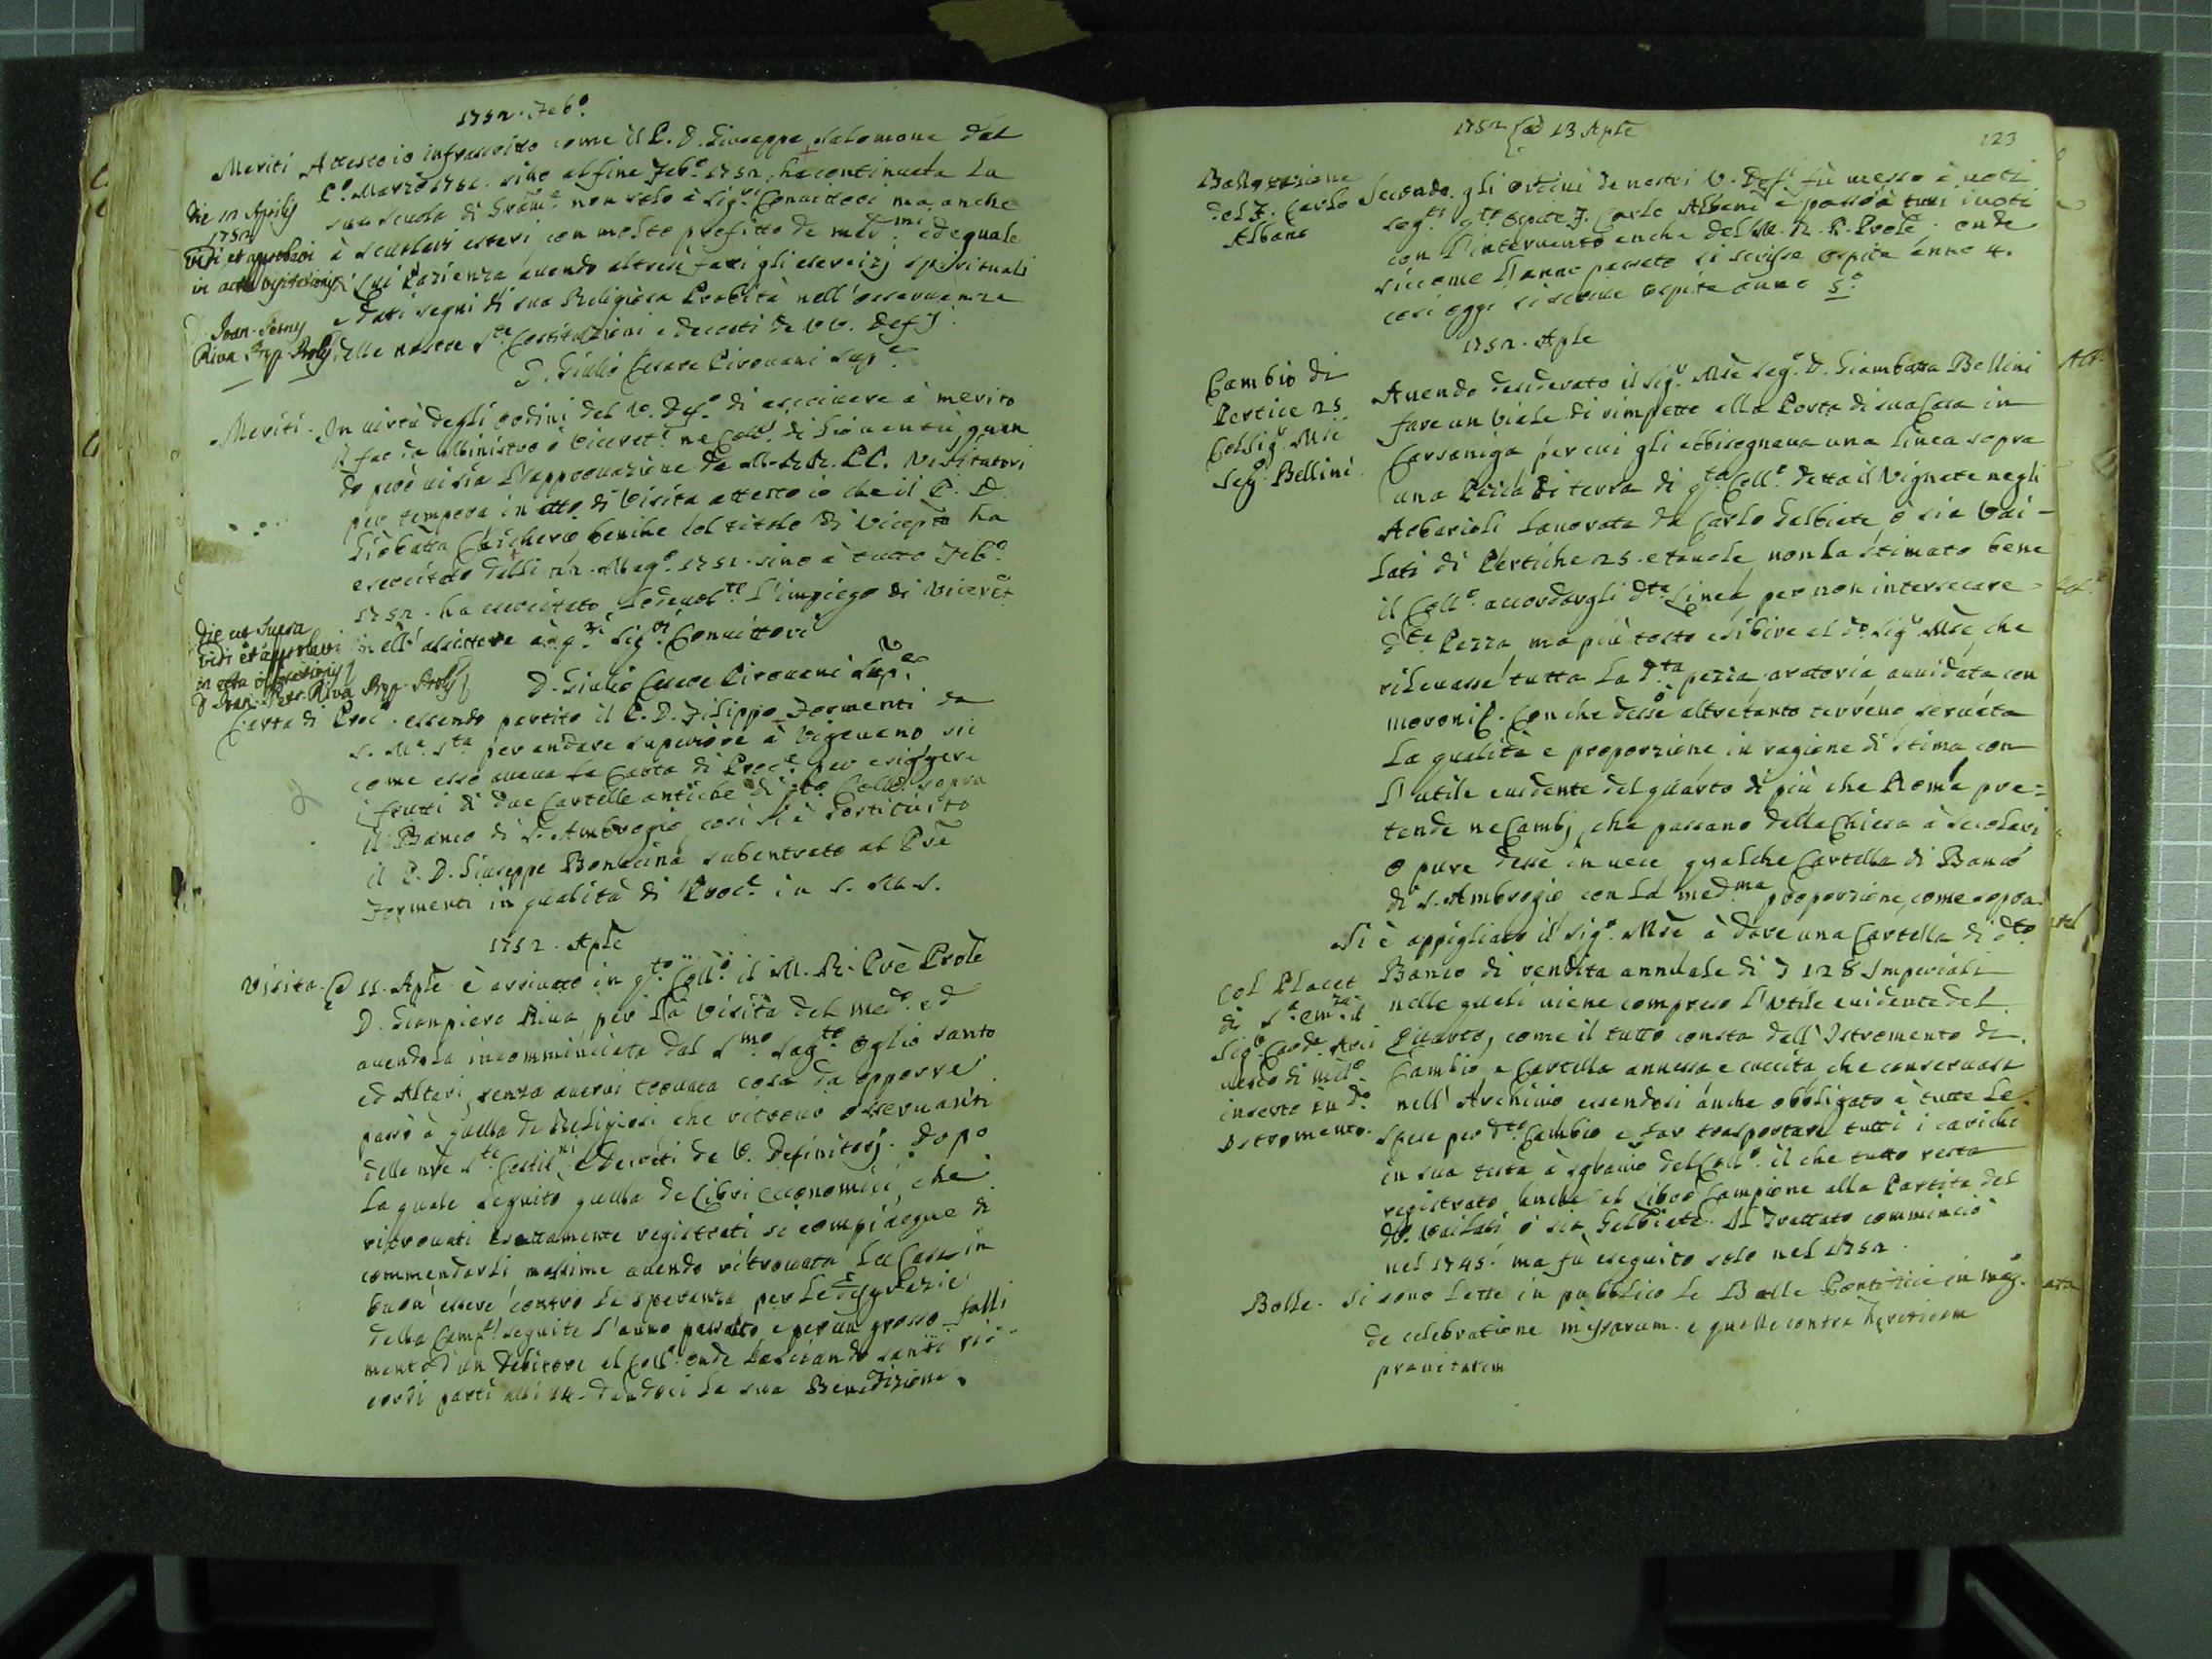 1752. Feb.º
Meriti Attesto io infrascritto come il P. D. Giuseppe Salomone dal
P.º Marzo 1751. sino al fine Feb.º 1752. ha continuata la
sua scuola di Gram.ª non solo à Sig.ri Convittori ma anche
à scuolari esteri con molto profitto de med.mi ed eguale
Pazienza avendo altresi fatti gli esercizj spirituali
e dati segni di sua Religiosa Probità nell'osservanza
delle nostre S.te Costituzioni e decreti de VV. Def.j
D. Giulio Cesare Pirovani Sup.e
die 12 Aprilis
1752
Vidi et approbavi
in actu visitationis
D. Joan. Petrus
Riva Prep. Prolis
Meriti. In virtù degli ordini del V. Def.º di ascrivere à merito
il far da Ministro ò Viceret.e ne Coll.j di Gioventù, quan
do però vi sia l'approvazione de M. R. R. P P. Visitatori
per tempora in atto di Visita attesto io che il P. D.
Giobatta benche col titolo di ha
esercitato delli 22. Mag.º 1751. sino à tutto Feb.º
1752. ha esercitato l'impiego di Viceret.e
assistere à q.ti Sig.ri Convittori
D. Giulio Cesare Pirovani Sup.e
die ut supra
vidi et approbavi
in actu visitationis
D. Joan. Petr. Riva Prep. Prolis
Carta di Proc.ª essendo partito il P. D. Filippo Formenti da
S. M.ª S.ta per andare superiore à Vigevano sic
come esso aveva la Carta di Proc.ª per esiggere
i frutti di due Cartelle antiche di q.to Coll.º sopra
il Banco di S. Ambrogio così si è sostituito
il P. D. Giuseppe Bonacina subentrato al Pre
Formenti in qualità di Proc.e in S. M. S.
1752. Aple
Visita. @ 11. Aple è arrivato in q.to Coll.º il M. R. Pre Prole
D. Gianpiero Riva per la visita del med.º ed
avendola incomminciata dal S.mo Sag.to Oglio santo
ed Altari, senza avervi trovata cosa da opporre
passò à quella de Religiosi che ritrovò osservanti
delle nre S.te Costit.ni e Decreti de V. Definitorj. Dopo
la quale seguitò quella de Libri economici, che
ritrovati esattamente registrati si compiacque di
commendarli, massime avendo ritrovata la Casa in
buon essere contro la speranza per le disgrazie
della Camp.ª seguite l'anno passato e per un grosso falli
mento d'un debitore al Coll.º onde lasciando santi ri
cordi partì alli 14. dandoci la sua Benedizione.
1752 ad 13 Aple
123
Ballottazione
del F. Carlo
Albani
Secondo gli ordini de nostri V. Def.i fù messo à voti
seg.ti q.to ospite F. Carlo Albani e passò à tutti i voti
con l'intervento anche del M. R. P. Prole. onde
siccome l'anno passato si scrisse ospite anno 4.
così oggi si scrive ospite anno 5.º
1752. Aple
Cambio di
Pertice 25
Col Sig.r Mse
Seg.º Bellini
Avendo desiderato il Sig.r Mse Seg.º D. Giambatta Bellini
fare un Viale di rimpetto alla Porta di sua Casa in
Carsaniga per cui gli abbisognava una linea sopra
una Pezza di terra di q.to Coll.º detta il Vignate negli
lavorata da Carlo Galbiate ò sia Vai-
lati di Pertiche 25. e tavole non ha stimato bene
il Coll.º accordargli d.ta Linea per non intersecare
d.ta Pezza, ma più tosto esibire al d.º Sig.r Mse, che
rilevasse tutta la d.ta pezza aratoria avvidata con
moroni P. con che desse altretanto terreno servata
la qualità e proporzione in ragione di stima con
l'utile evidente del quarto di più che Roma pre=
tende ne Cambj, che passano dalla Chiesa à Secolari
o pure desse in vece qualche Cartella di Banco
di S. Ambrogio con la med.ma proporzione, come sopra.
Si è appigliato il Sig.r Mse à dare una Cartella di d.to
Banco di rendita annuale di 128 Imperiali
nelle quali viene compreso l'utile evidente del
Quarto, come il tutto consta dell'Istromento di
Cambio, e Cartella annessa e cuccita che conservasi
nell'Archivio essendosi anche obbligato à tutte le
spese per d.to Cambio e far trasportare tutti i carichi
in sua testa à sgravio del Coll.º il che tutto resta
registrato anche al Libro Campione alla Partita del
d.º Vailati ò sia Galbiate. Il Trattato comminciò
nel 1745. ma fù eseguito solo nel 1752.
Col Placet
di S.ª Em.za il
Sig.r Card.e Arci
vesco di Mil.º
inserto in d.º
Istromento.
Bolle. Si sono lette in pubblico le Bolle Pontificie in mag.
de celebratione missarum. e quelle contra hereticam
pravitatem